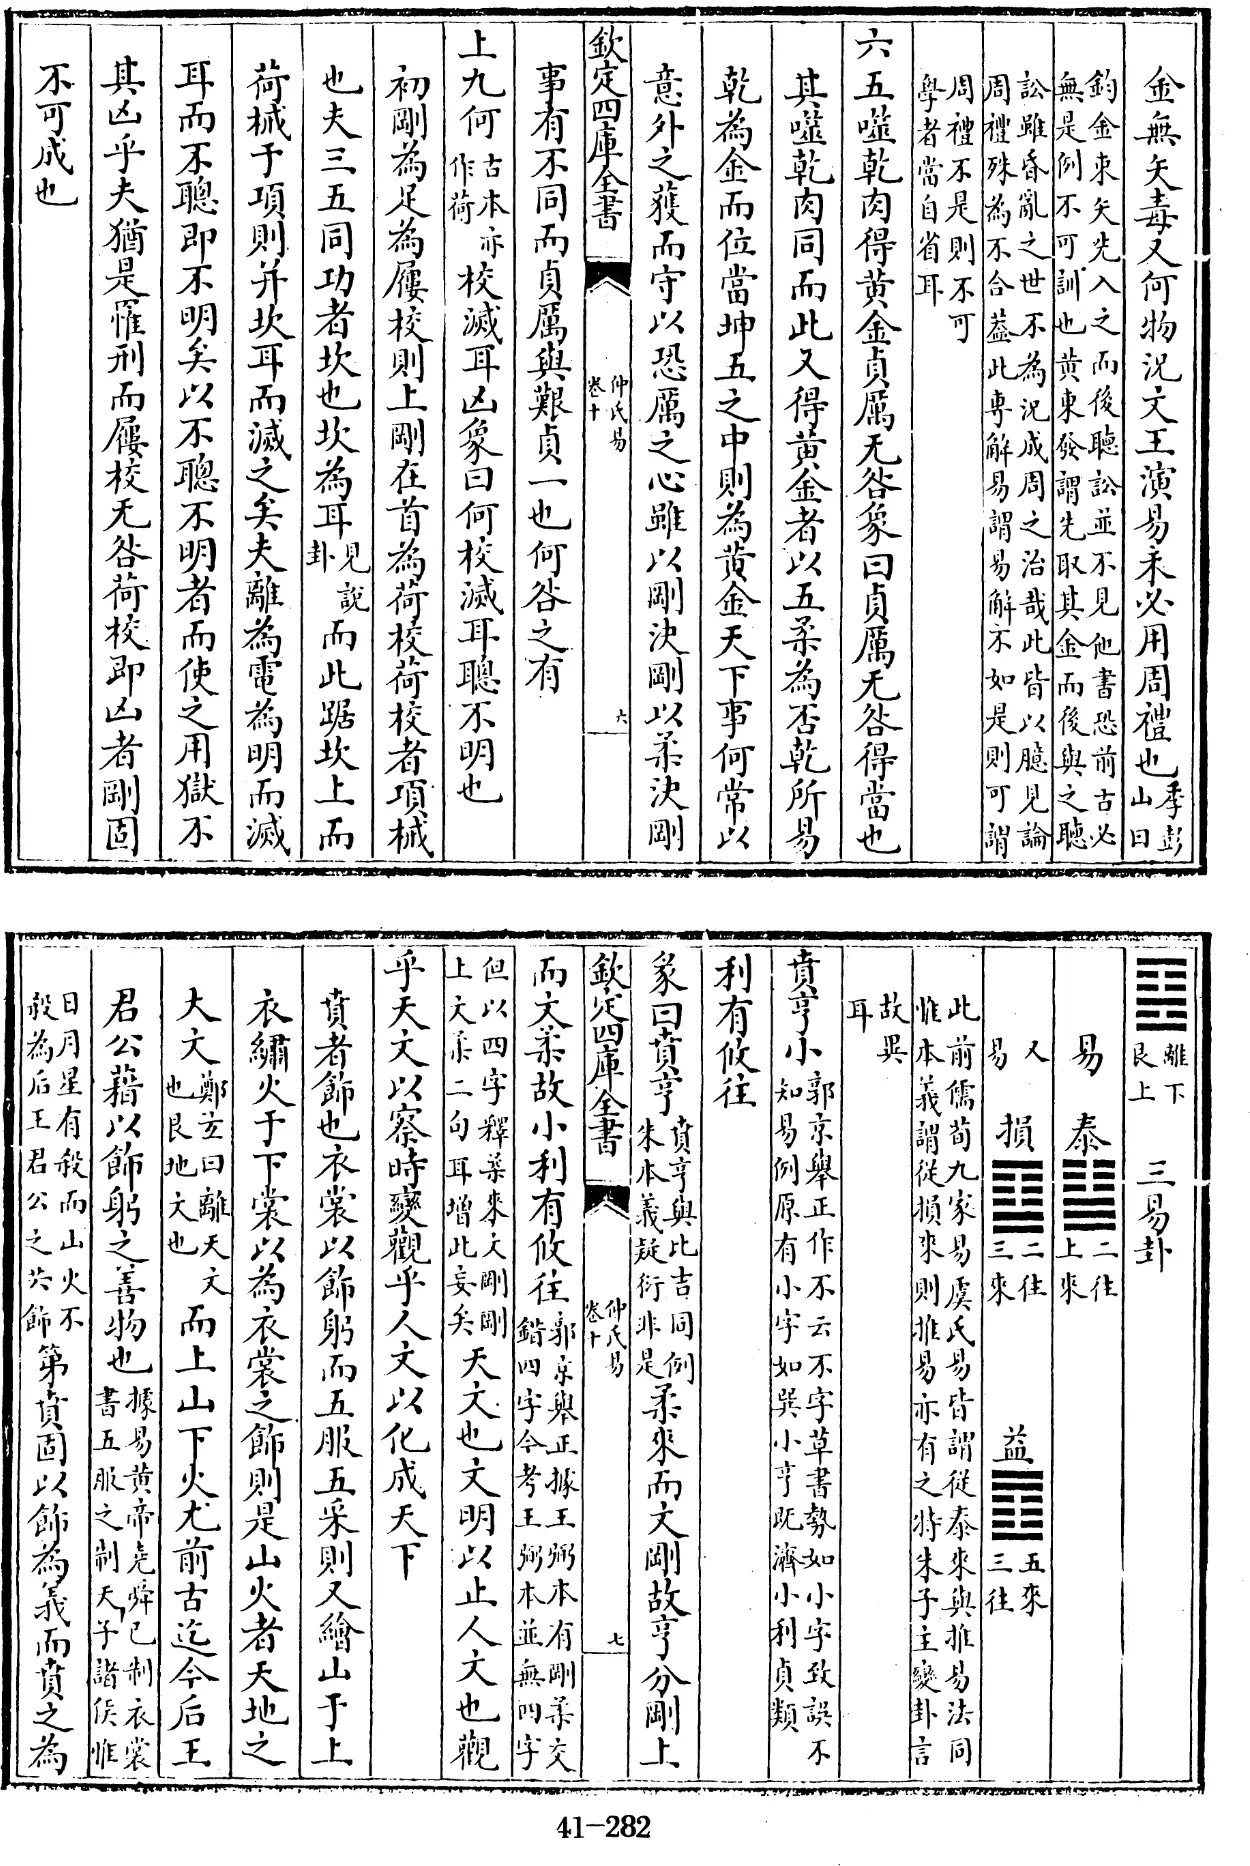 金無矢毒又何物況文王演易未必用周禮也季彭山曰
鈞金束矢先入之而後聽訟並不見他書恐前古必
無是例不可訓也黄東發謂先取其金而後與之聽
訟雖昏亂之世不為況成周之治哉此皆以臆見論
周禮殊為不合葢此専解易謂易解不如是則可謂
周禮不是則不可
學者當自省耳
六五噬乾肉得黄金貞厲无咎象曰貞厲无咎得當也
其噬乾肉同而此又得黄金者以五柔為否乾所易
乾為金而位當坤五之中則為黄金天下事何常以
意外之獲而守以恐厲之心雖以剛決剛以柔決剛
欽定四庫全書
仲氏易
卷十
六
事有不同而貞厲與艱貞一也何咎之有
上九何古本亦作荷校滅耳凶象曰何校滅耳聰不明也
初剛為足為屨校則上剛在首為荷校荷校者項械
也夫三五同功者坎也坎為耳見說卦而此踞坎上而
荷械于項則并坎耳而滅之矣夫離為電為明而滅
耳而不聰即不明矣以不聰不明者而使之用獄不
其凶乎夫猶是罹刑而屨校无咎荷校即凶者剛固
不可成也
離下
艮上
三易卦
易
泰
二往
上來
又
易
損
二往
三來
益
五來
三往
此前儒荀九家易虞氏易皆謂從泰來與推易法同
惟本義謂從損來則推易亦有之特朱子主變卦言
故異
耳
賁亨小郭京舉正作不云不字草書勢如小字致誤不
知易例原有小字如巽小亨既濟小利貞類
利有攸往
彖曰賁亨賁亨與比吉同例
朱本義疑衍非是柔來而文剛故亨分剛上
欽定四庫全書
仲氏易
卷十
七
而文柔故小利有攸往郭京舉正據王弼本有剛柔交
錯四字今考王弼本並無四字
但以四字釋柔來文剛剛
上文柔二句耳增此妄矣天文也文明以止人文也觀
乎天文以察時變觀乎人文以化成天下
賁者飾也衣裳以飾躬而五服五采則又繪山于上
衣繡火于下裳以為衣裳之飾則是山火者天地之
大文鄭玄曰離天文
也艮地文也而上山下火尤前古迄今后王
君公藉以飾躬之善物也據易黄帝堯舜已制衣裳
書五服之制天子諸侯惟
日月星有殺而山火不
殺為后王君公之共飾第賁固以飾為義而賁之為
41-282